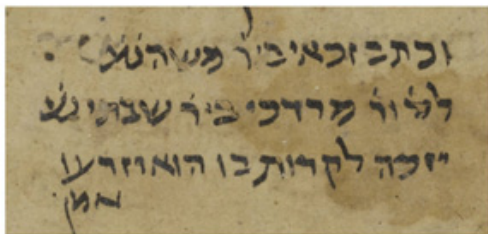 וכתב זכאי ביר משה נע
מרדכי ביר שבתי נע
יזכה לקרות בו הוא וזרעו
אמן